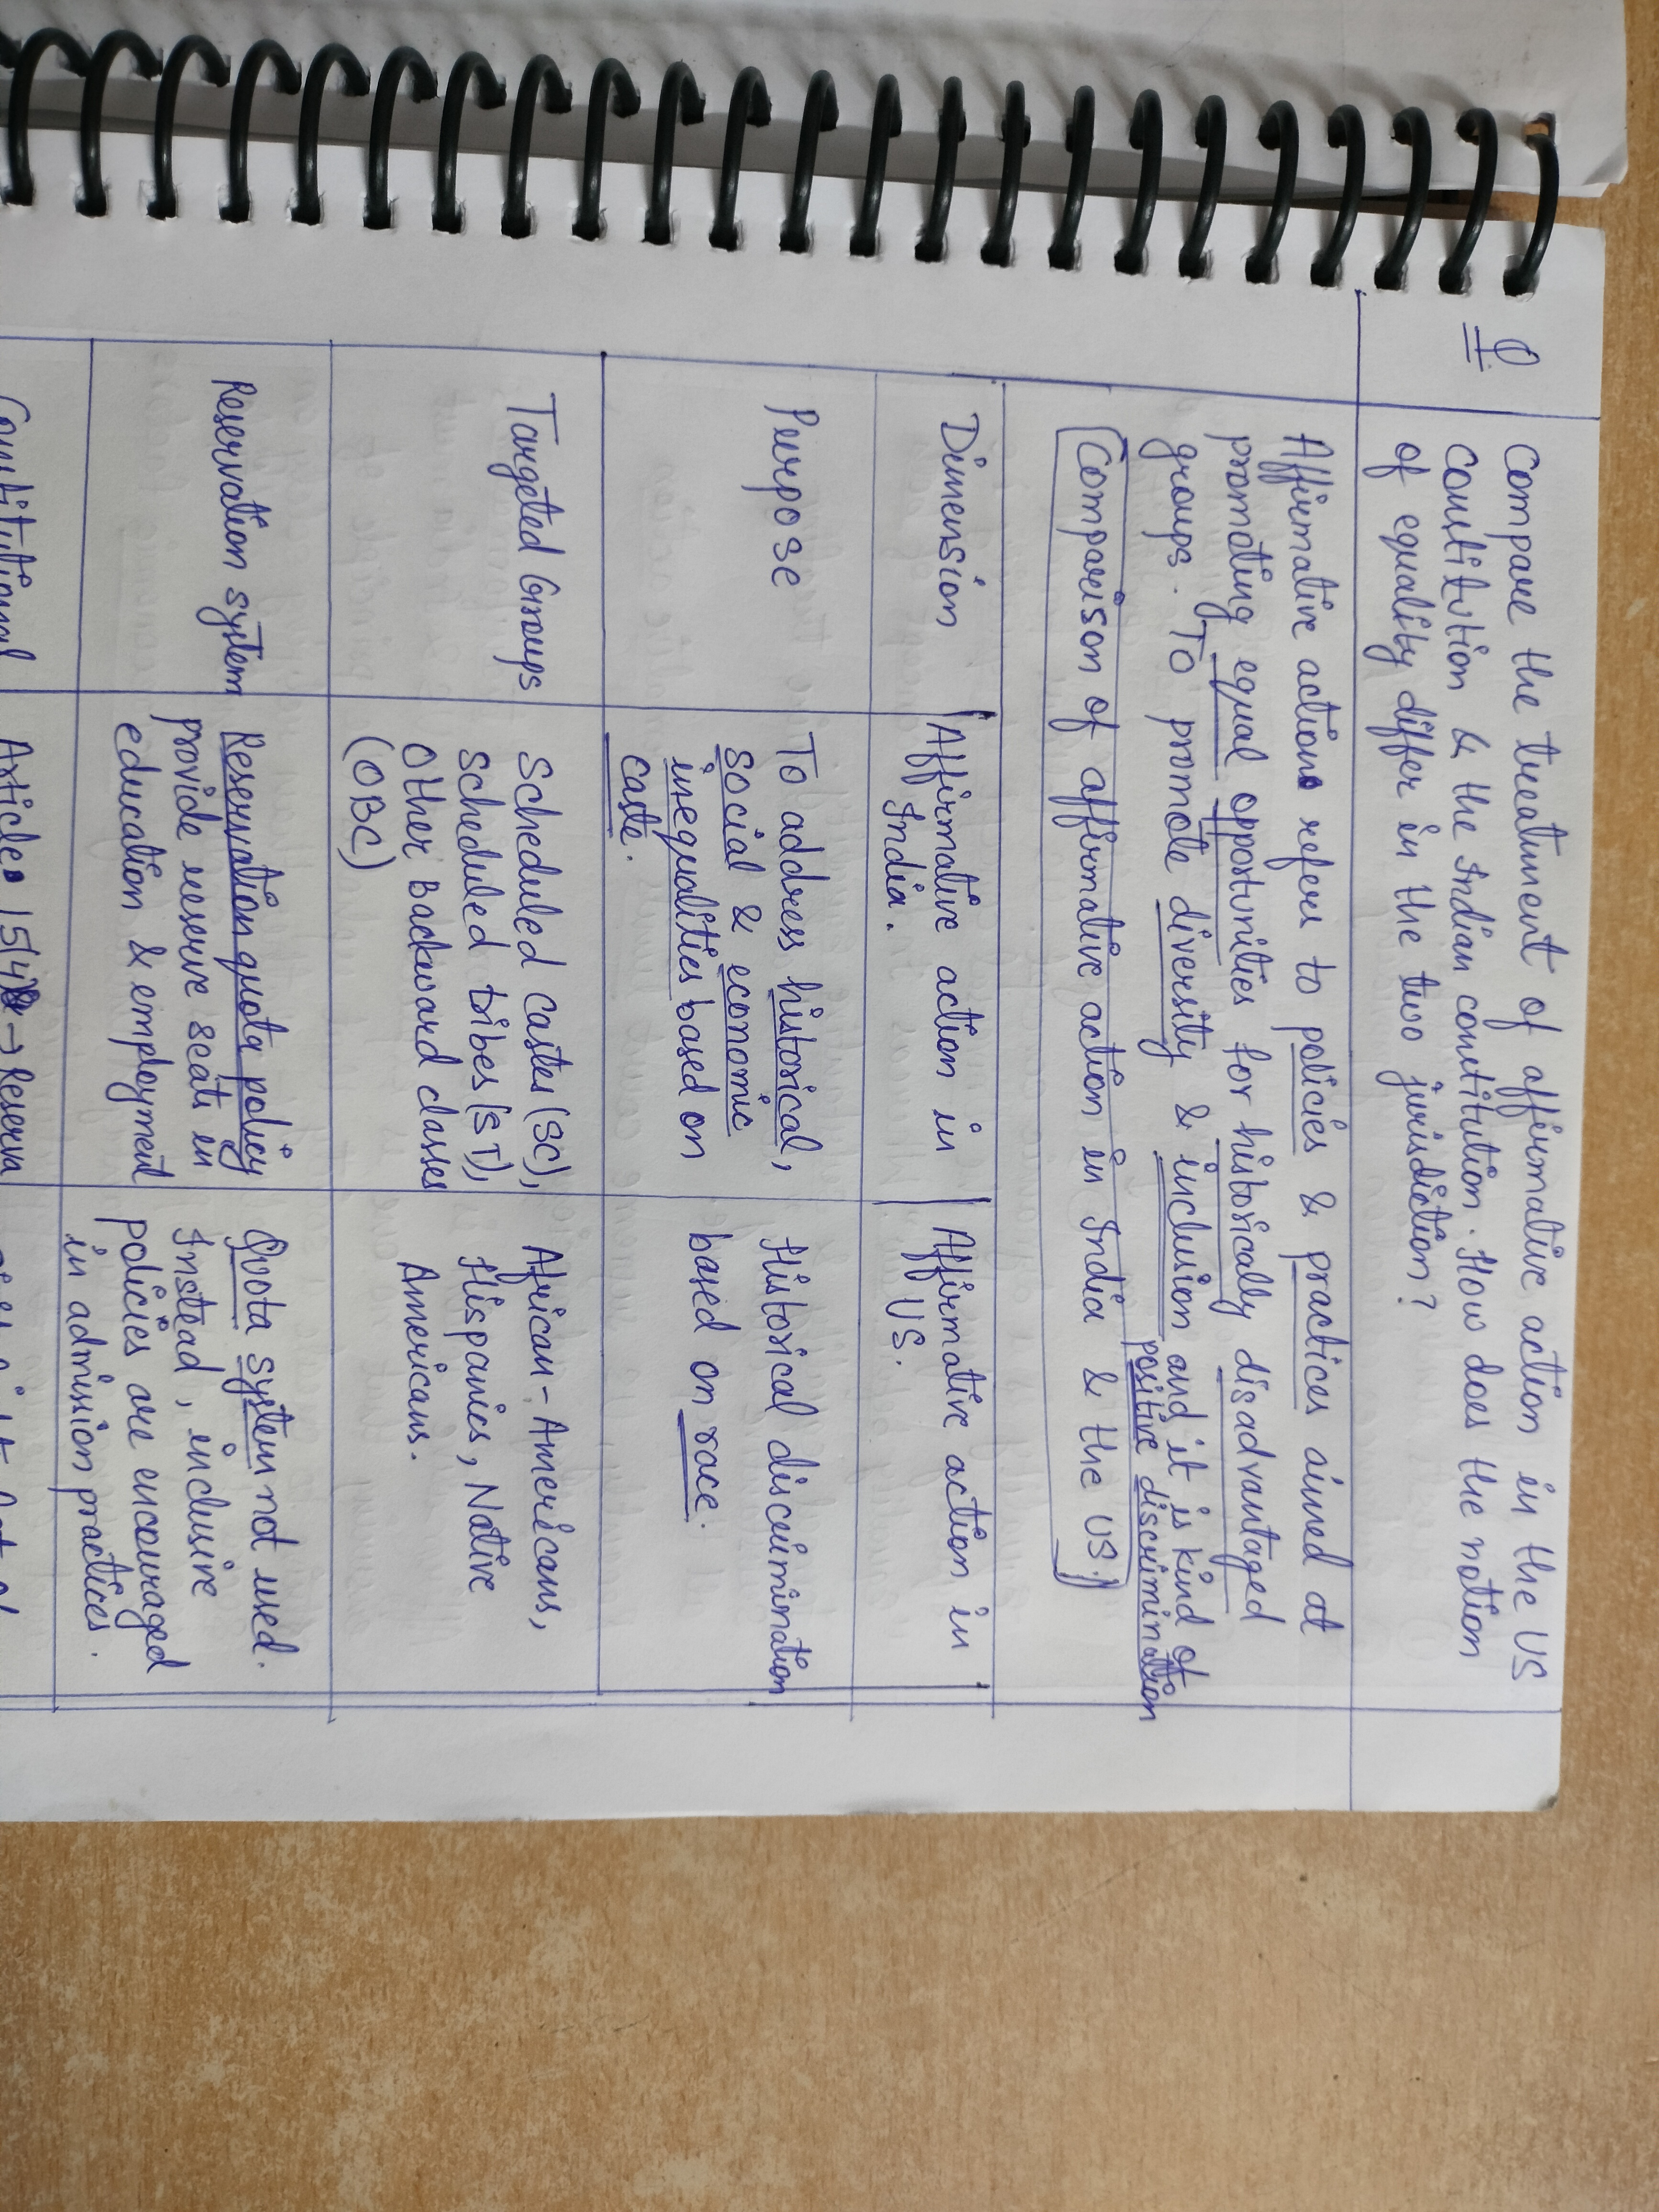 Q
Compare the treatment of affirmative action in the US
constitution & the Indian constitution. How does the notion
of equality differ in the two jurisdiction?
Affirmative actions refers to policies & practices aimed at
promoting equal opportunities for historically disadvantaged
groups. To promote diversity & inclusion and it is kind of
positive discrimination
Comparison of affirmative action in India & the US.
Dimension
Affirmative action in
India.
Affirmative action in
US.
Purpose
To address historical,
social & economic
inequalities based on
caste.
Historical discrimination
based on race.
Targeted Groups
Scheduled castes (SC),
scheduled tribes (ST),
Other Backward classes
(OBC)
African-Americans,
Hispanics, Native
Americans.
Reservation system
Reservation quota policy
provide reserve seats in
education & employment
Quota system not used.
Instead, inclusive
policies are encouraged
in admission practices.
Constitutional
Article 15(4) → Reserva